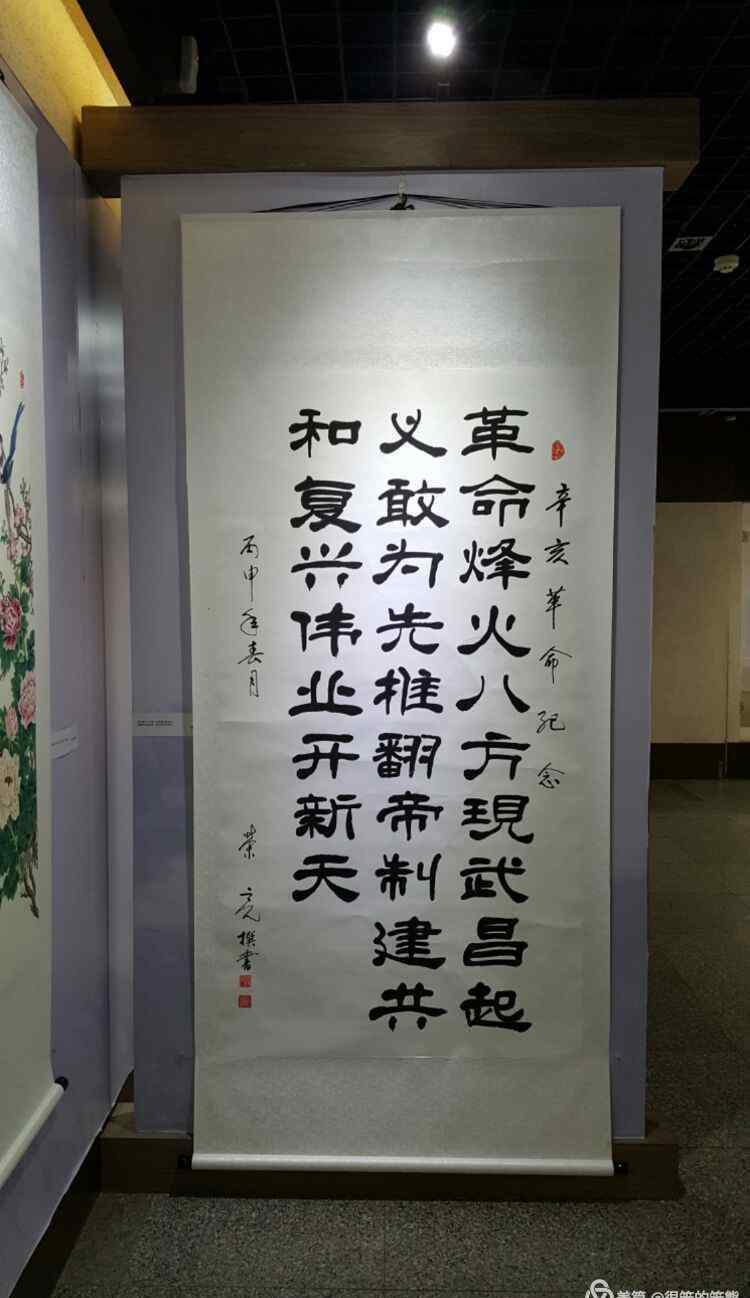 辛亥革命纪念
革命烽火八方現武昌起
义敢为先推翻帝制建共
和复兴伟业开新天
丙申年春月
荣亮撰书
美篇 @很笨的笨熊